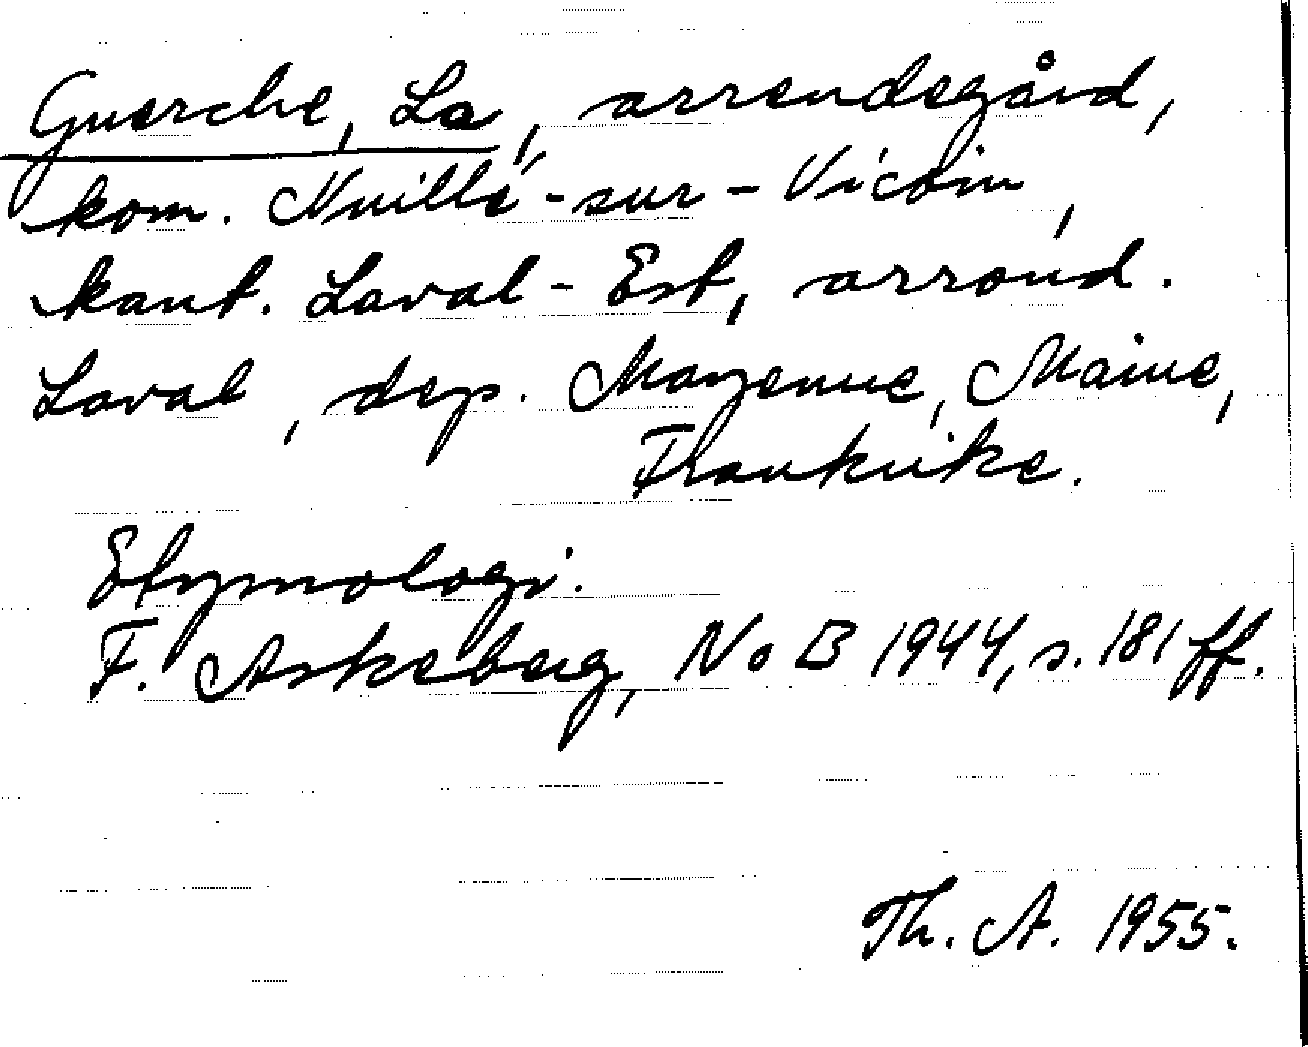 Guerche, La, arrendegård,
kom. Nuillé-sur-Vicoin,
kant. Laval-Est, arrond.
Laval, dep. Mayenne, Maine,
Frankrike.
Etymologi.
F. Askeberg, NoB 1944, s. 181 ff.
Th. A. 1955.